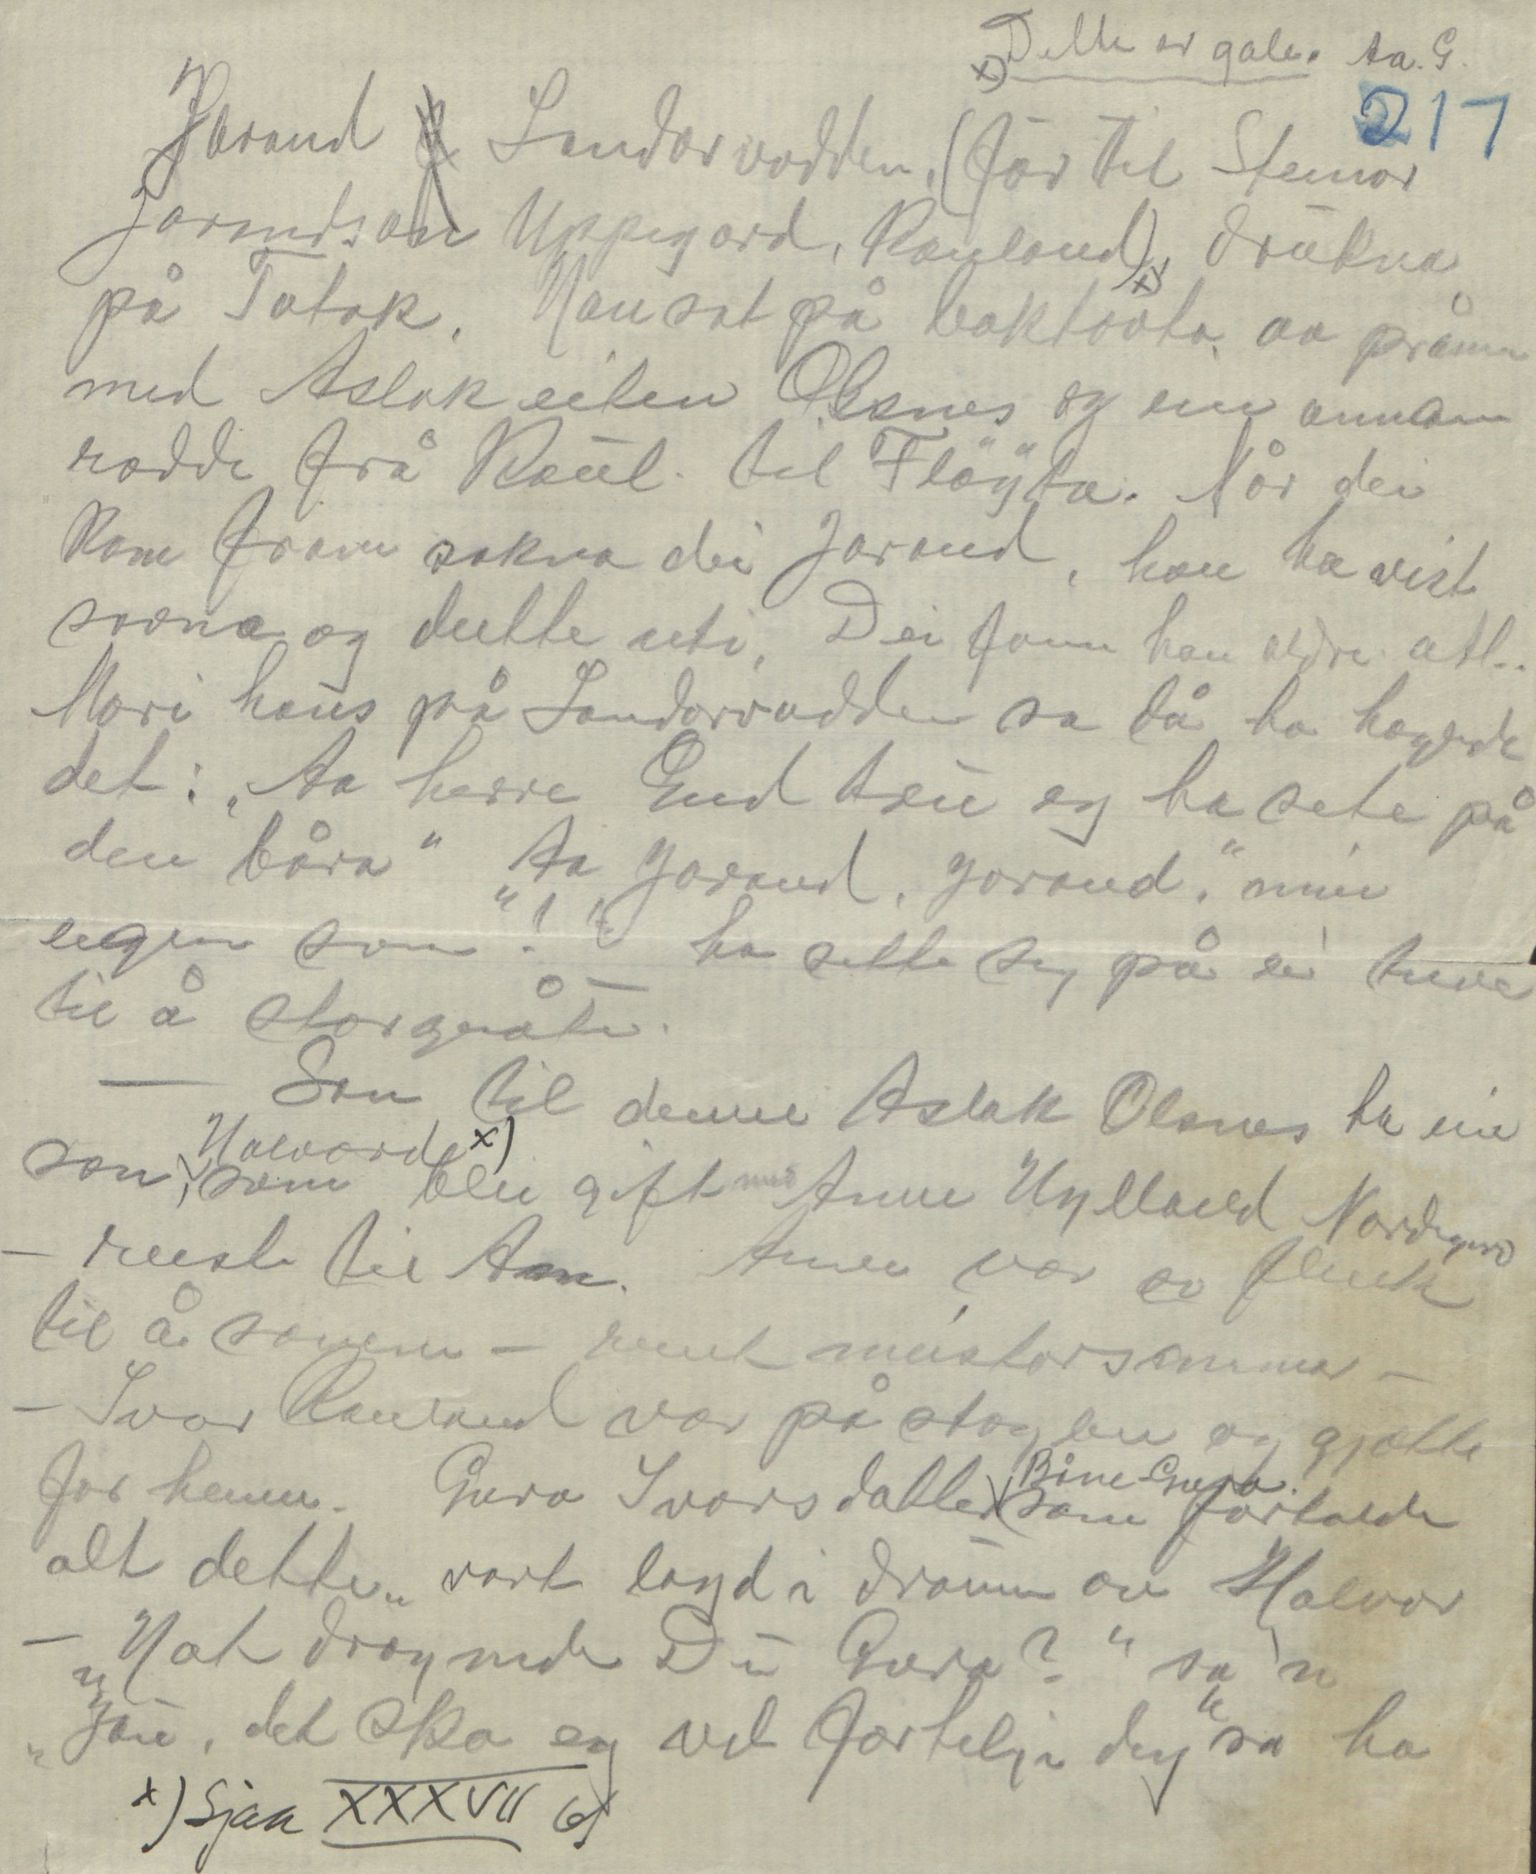 x) Dette er gale. Aa. G.
217
Jarand Sandarvodden, (far til Steinar
Jarandson Uppigard, Rauland) x), drukna
på Totak. Han sat på baktofta av pråmen
med Aslak eiten Olsnes og ein annan
rodde frå Raul. til Fløyta. Når dei
kom fram sakna dei Jarand, han ha vist
sovna og dutte uti, Dei fann han aldri att..
Mori hans på Sandarvodden sa då ho høyrde
det: "Aa herre Gud tru eg ha sete på
den båra" "Aa, Jarand, Jarand," min
eigen son"! ho sette seg på ei tuve
til å storgråte.
— Son til denne Aslak Olsnes ha ein
son, Halvard x) som blei gift med Anne Hylland Nordigard
— reiste til Am. Anne var so flink
til å saume — reint meistarsaumar —
— Ivar Rauland var på stoylen og gjætte
for henne. Guro Ivarsdatter (Båne-Guro. som fortalde
alt dette, vart lagd i draum av Halvor
— "Hot drøymde Du Guro?" sa'n
"Jau, det ska eg vel fortelja deg" sa ho
x) Sjaa XXXVII 6)